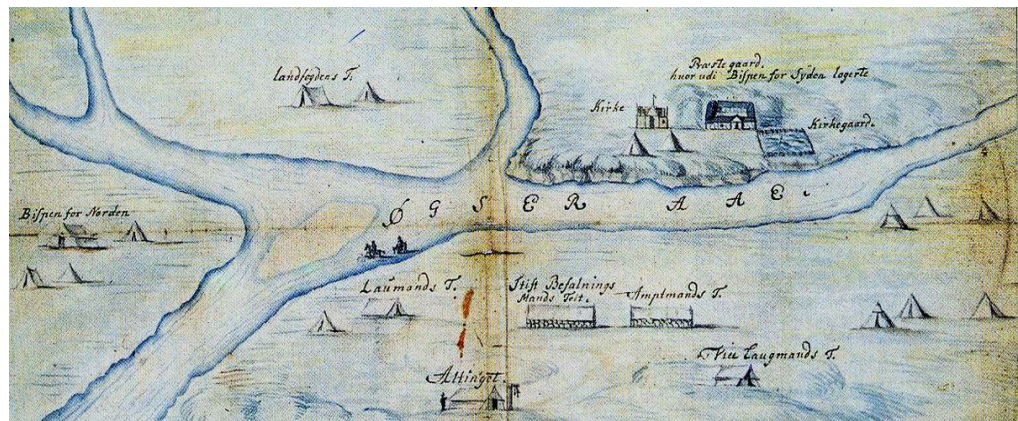 landfogdens T.
Præste gaard.
hvor udi Bispen for Syden logerte
Kirke
Kirkegaard.
Bispen for Norden
ØGSER AAE.
Laumands T.
Stift Befalnings
Mands Telt.
Amptmands T.
Vice Laugmands T.
Altinget.